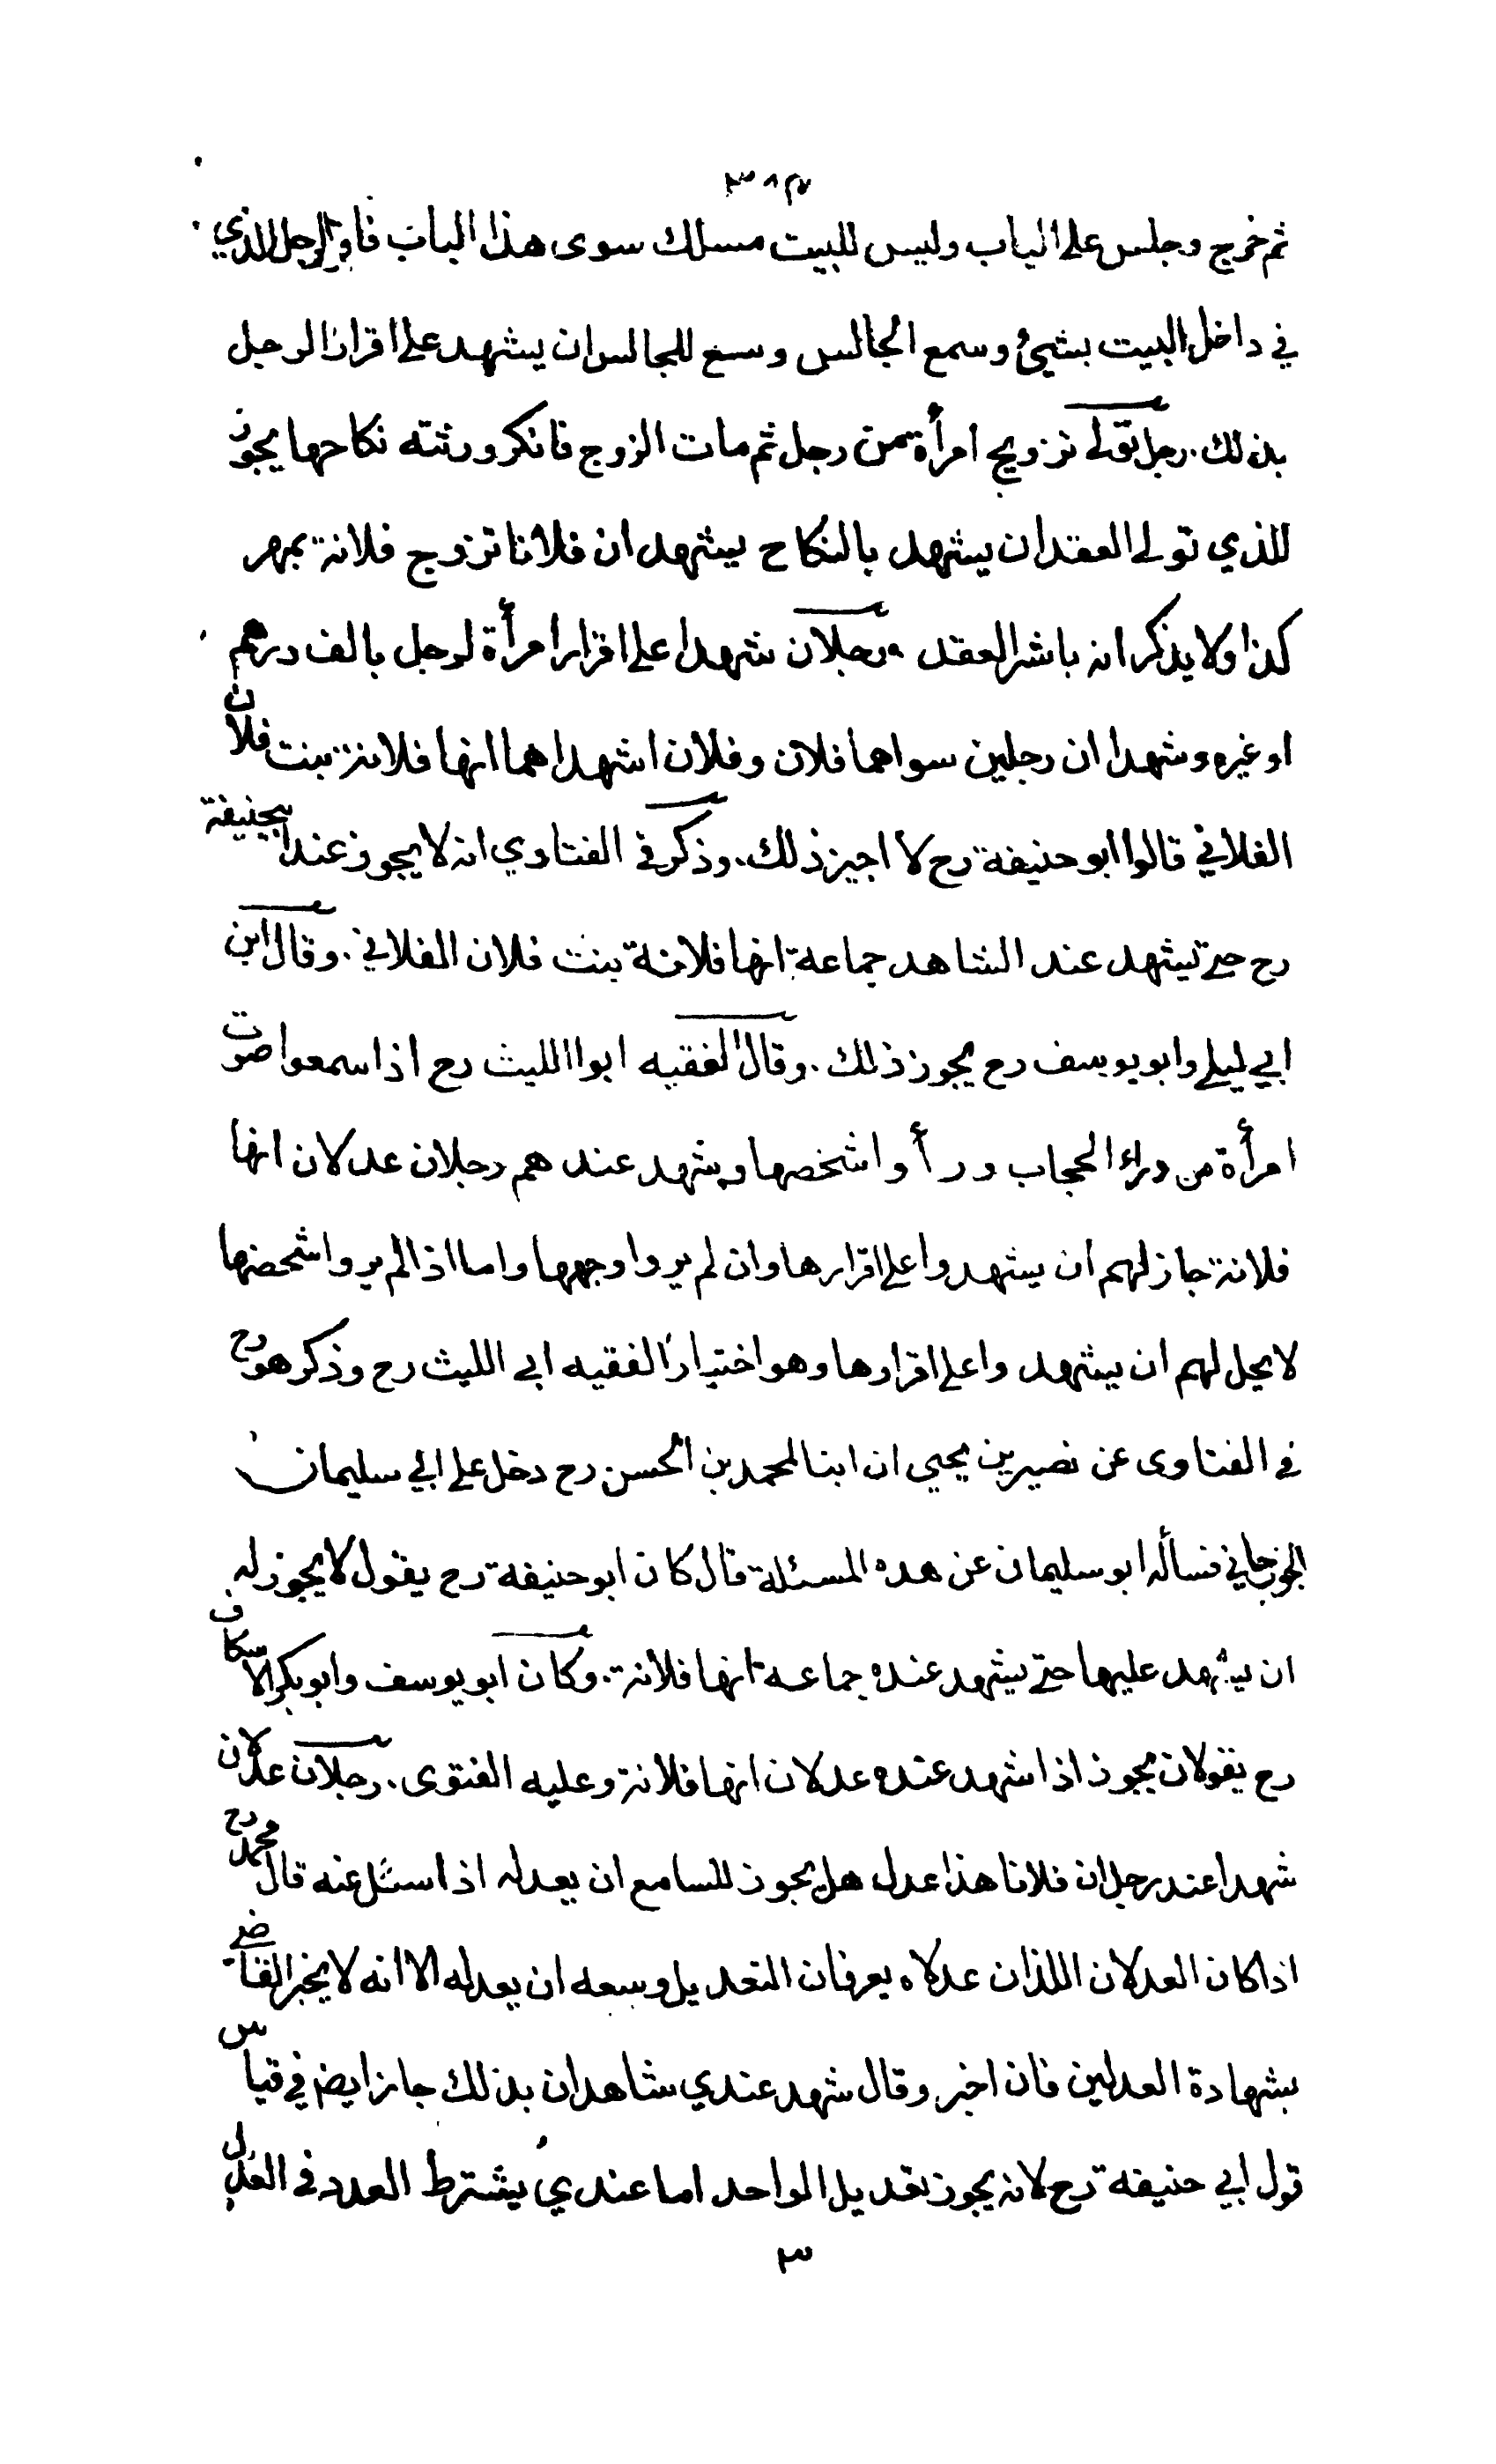 ٣٨٤
ثم خرج وجلس على الباب وليس للبيت مسلك سوى هذا الباب فاقر الرجل الذي
في داخل البيت بشيئ وسمع الجالس وسع للجالس ان يشهد على اقرار الرجل
بذلك. رجل تولى تزويج امرأة من رجل ثم مات الزوج فانكر ورثته نكاحها يجوز
للذي تولى العقد ان يشهد بالنكاح يشهد ان فلانا تزوج فلانة بمهر
كذا ولا يذكر انه باشر العقد. رجلان شهدا على اقرار امرأة لرجل بالف درهم
او غيره وشهدا ان رجلين سواهما فلان وفلان اشهدا هما انها فلانة بنت فلان
الفلاني قالوا ابو حنيفة رح لا اجيز ذلك. وذكر في الفتاوي انه لا يجوز عند ابيحنيفة
رح حتى تيشهد عند الشاهد جماعة انها فلانة بنت فلان الفلاني. وقال ابن
ابي ليلى وابو يوسف رح يجوز ذلك. وقال الفقيه ابوا الليث رح اذا سمعوا صوت
امرأة من وراء الحجاب ورأوا شخصها ويشهد عند هم رجلان عدلان انها
فلانة جاز لهم ان يشهدوا على اقرارها وان لم يروا وجهها واما اذا لم يروا شخصها
لا يحل لهم ان يشهدوا على اقرارها وهو اختيار الفقيه ابي الليث رح وذكر هو رح
في الفتاوى عن نصير بن يحيي ان ابنا لمحمد بن الحسن رح دخل على ابي سليمان
الجوزجاني فسأله ابو سليمان عن هذه المسئلة قال كان ابو حنيفة رح يقول لا يجوز له
ان يشهد عليها حتى يشهد عنده جماعة انها فلانة. وكان ابو يوسف وابو بكر الاسكاف
رح يقولان يجوز اذا شهد عنده عدلان انها فلانة وعليه الفتوى. رجلان عدلان
شهدا عند رجل ان فلانا هذا عدل هل يجوز للسامع ان يعدله اذا سئل عنه قال محمد رح
اذا كان العدلان اللذان عدلاه يعرفان التعديل وسعه ان يعدله الا انه لا يخبر القاضي
بشهادة العدلين فان اخبر وقال شهد عندي شاهدان بذلك جاز ايضا في قياس
قول ابي حنيفة رح لانه يجوز تعديل الواحد اما عندي يشترط العدد في العدل
٣